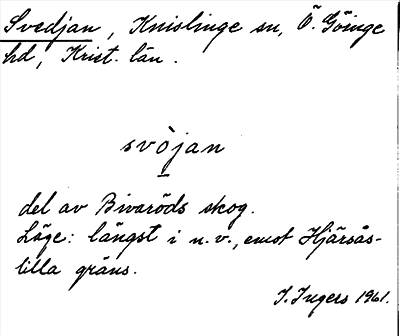 Svedjan, Knislinge sn, Ö. Göinge
hd, Krist. län.
svòjan
del av Bivaröds skog.
Läge: längst i n.v., emot Hjärsås-
lilla gräns.
I. Ingers 1961.